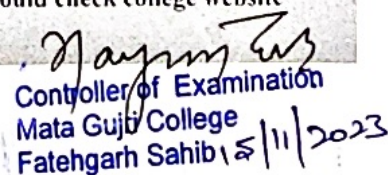 ould check college website
Controller of Examination
Mata Gujri College
Fatehgarh Sahib 15/11/2023